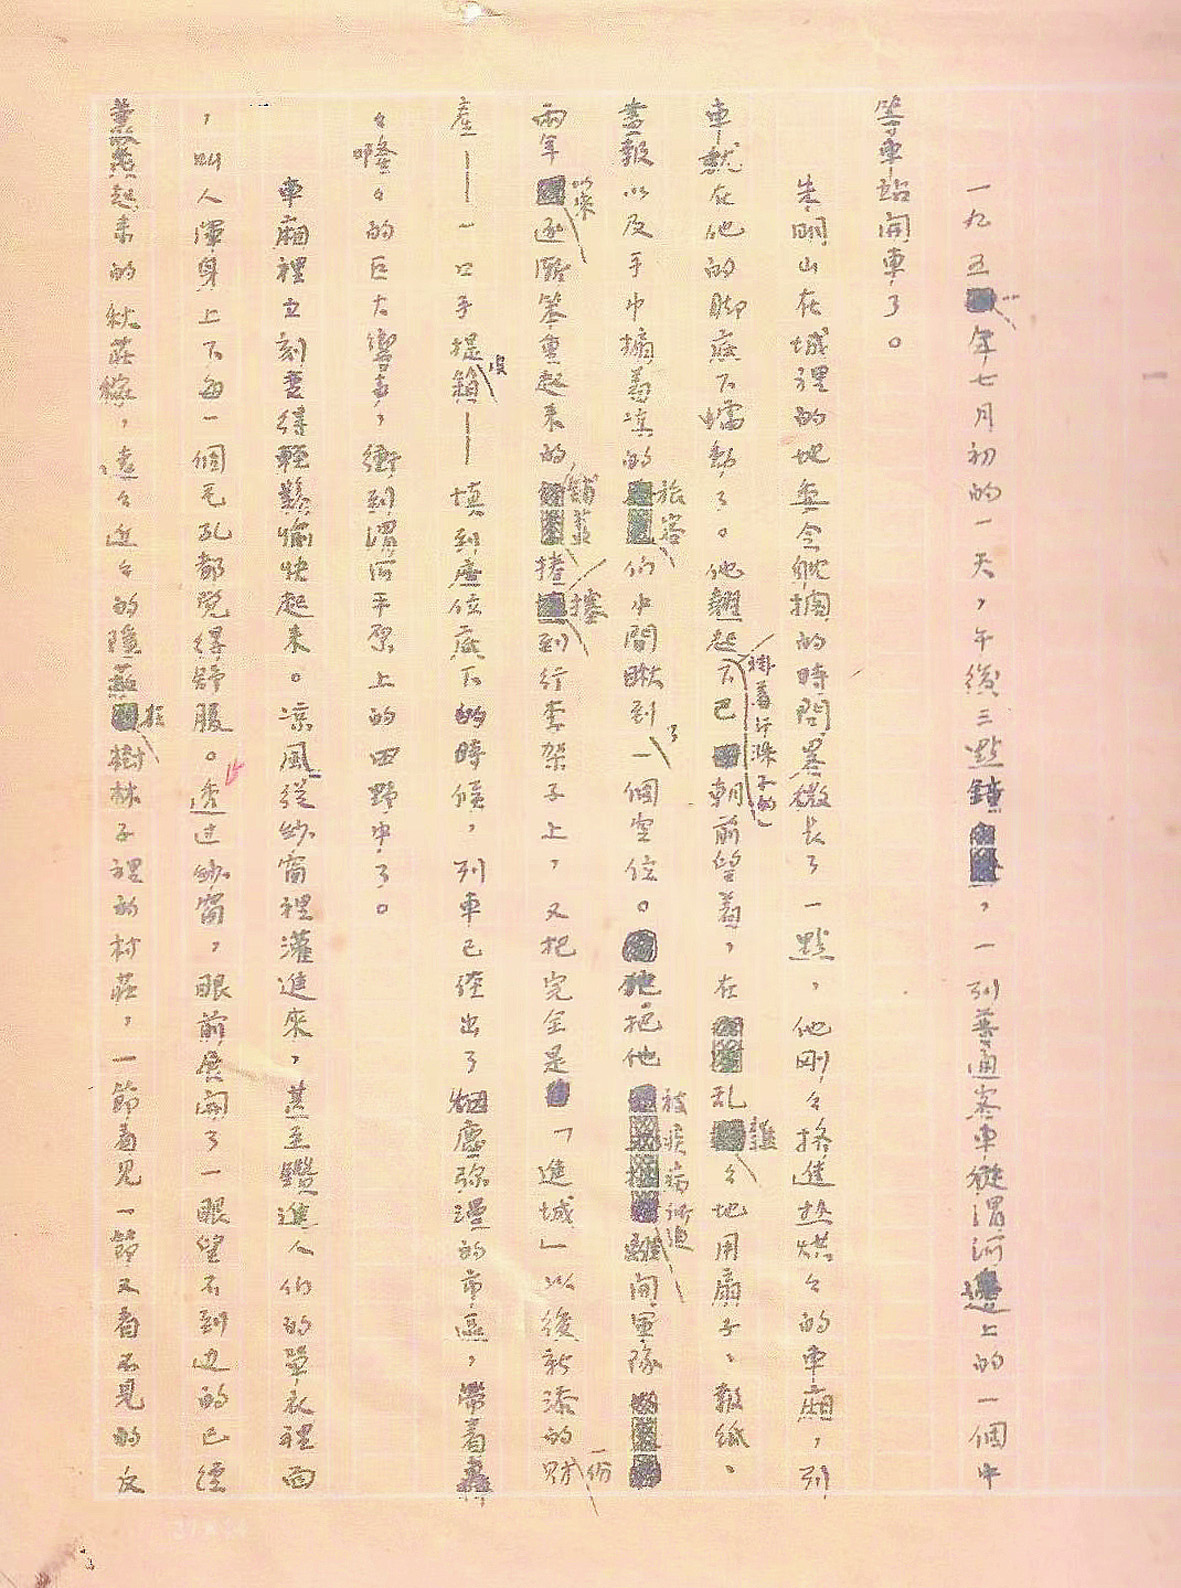 一
一九五三年七月初的一天，午後三點鐘，一列普通客車從渭河邊上的一個中
等車站開車了。
朱明山在城裡的地委会躭擱的時間畧微長了一點，他剛々擠進熱烘々的車廂，列
車就在他的脚底下蠕動了。他翹起掛着汗珠子的下巴朝前望着，在乱雜々地用扇子、報紙、
畫報以及手巾搧着凉的旅客们中間瞅到了一個空位。他把他被疾病所迫離開軍隊
兩年以來逐漸笨重起来的鋪蓋捲擩到行李架子上，又把完全是「進城」以後新添的一份財
產——一口手提皮箱——填到座位底下的時候，列車已經出了烟塵弥漫的市區，帶着轟
々隆々的巨大響声，衝到渭河平原上的田野中了。
車廂裡立刻变得輕鬆愉快起来。凉風從紗窗裡灌進來，甚至鑽進人们的單衣裡面
，叫人渾身上下每一個毛孔都覺得舒服。透过紗窗，眼前展開了一眼望不到边的已經
起来的秋莊稼，遠々近々的隱蔽在樹林子裡的村莊，一節看見一節又看不見的